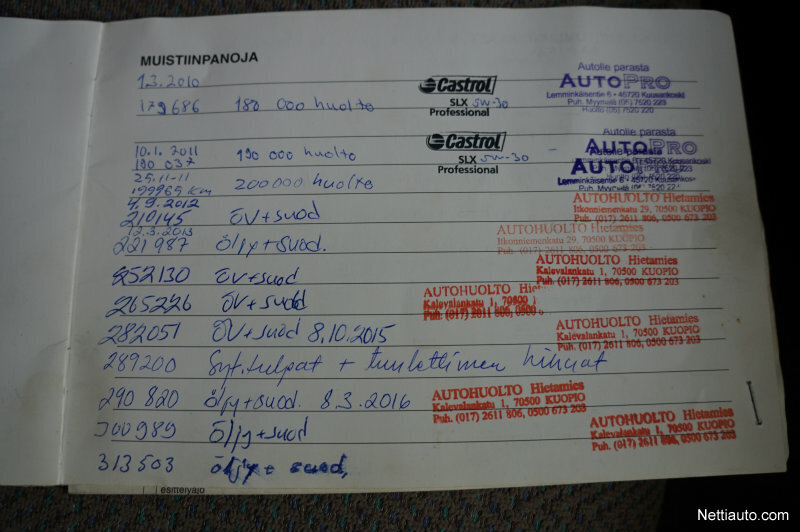 MUISTIINPANOJA
1.3.2010
179686 180 000 huolto
Castrol
SLX 5W-30
Professional
Autolle parasta
AUTOPRO
Lemminkäisentie 6 • 45720 Kuusankoski
Puh. Myymälä (05) 7520 223
Huolto (05) 7520 222
10.1.2011
190 037 190 000 huolto
Castrol
SLX 5W-30
Professional
Autolle parasta
AUTOPRO
25.11-11
199965 km 200 000 huolto
AUTOPRO
Lemminkäisentie 6 • 45720 Kuusankos
Puh. Myymälä (05) 7520 22
4.9.2012
210145 ÖV+suod
AUTOHUOLTO Hietamies
Itkonniemenkatu 29, 70500 KUOPIO
Puh. (017) 2611 806, 0500 673 203
12.3.2013
221987 Öljy+suod.
AUTOHUOLTO Hietamies
Itkonniemenkatu 29, 70500 KUOPIO
Puh. (017) 2611 806, 0500 673 203
252130 ÖV+suod
AUTOHUOLTO Hietamies
Kalevalankatu 1, 70500 KUOPIO
Puh. (017) 2611 806, 0500 673 203
265226 ÖV+suod
AUTOHUOLTO Hiet
Kalevalankatu 1, 70500
Puh. (017) 2611 806, 0500
282051 ÖV+suod 8.10.2015
AUTOHUOLTO Hietamies
Kalevalankatu 1, 70500 KUOPIO
Puh. (017) 2611 806, 0500 673 203
289200 Syt.tulpat + tuulettimen hihnat
290 820 Öljy+suod. 8.3.2016
AUTOHUOLTO Hietamies
Kalevalankatu 1, 70500 KUOPIO
Puh. (017) 2611 806, 0500 673 203
300989 Öljy+suod
AUTOHUOLTO Hietamies
Kalevalankatu 1, 70500 KUOPIO
Puh. (017) 2611 806, 0500 673 203
313503 öljy+ suod,
esittelyajo
Nettiauto.com